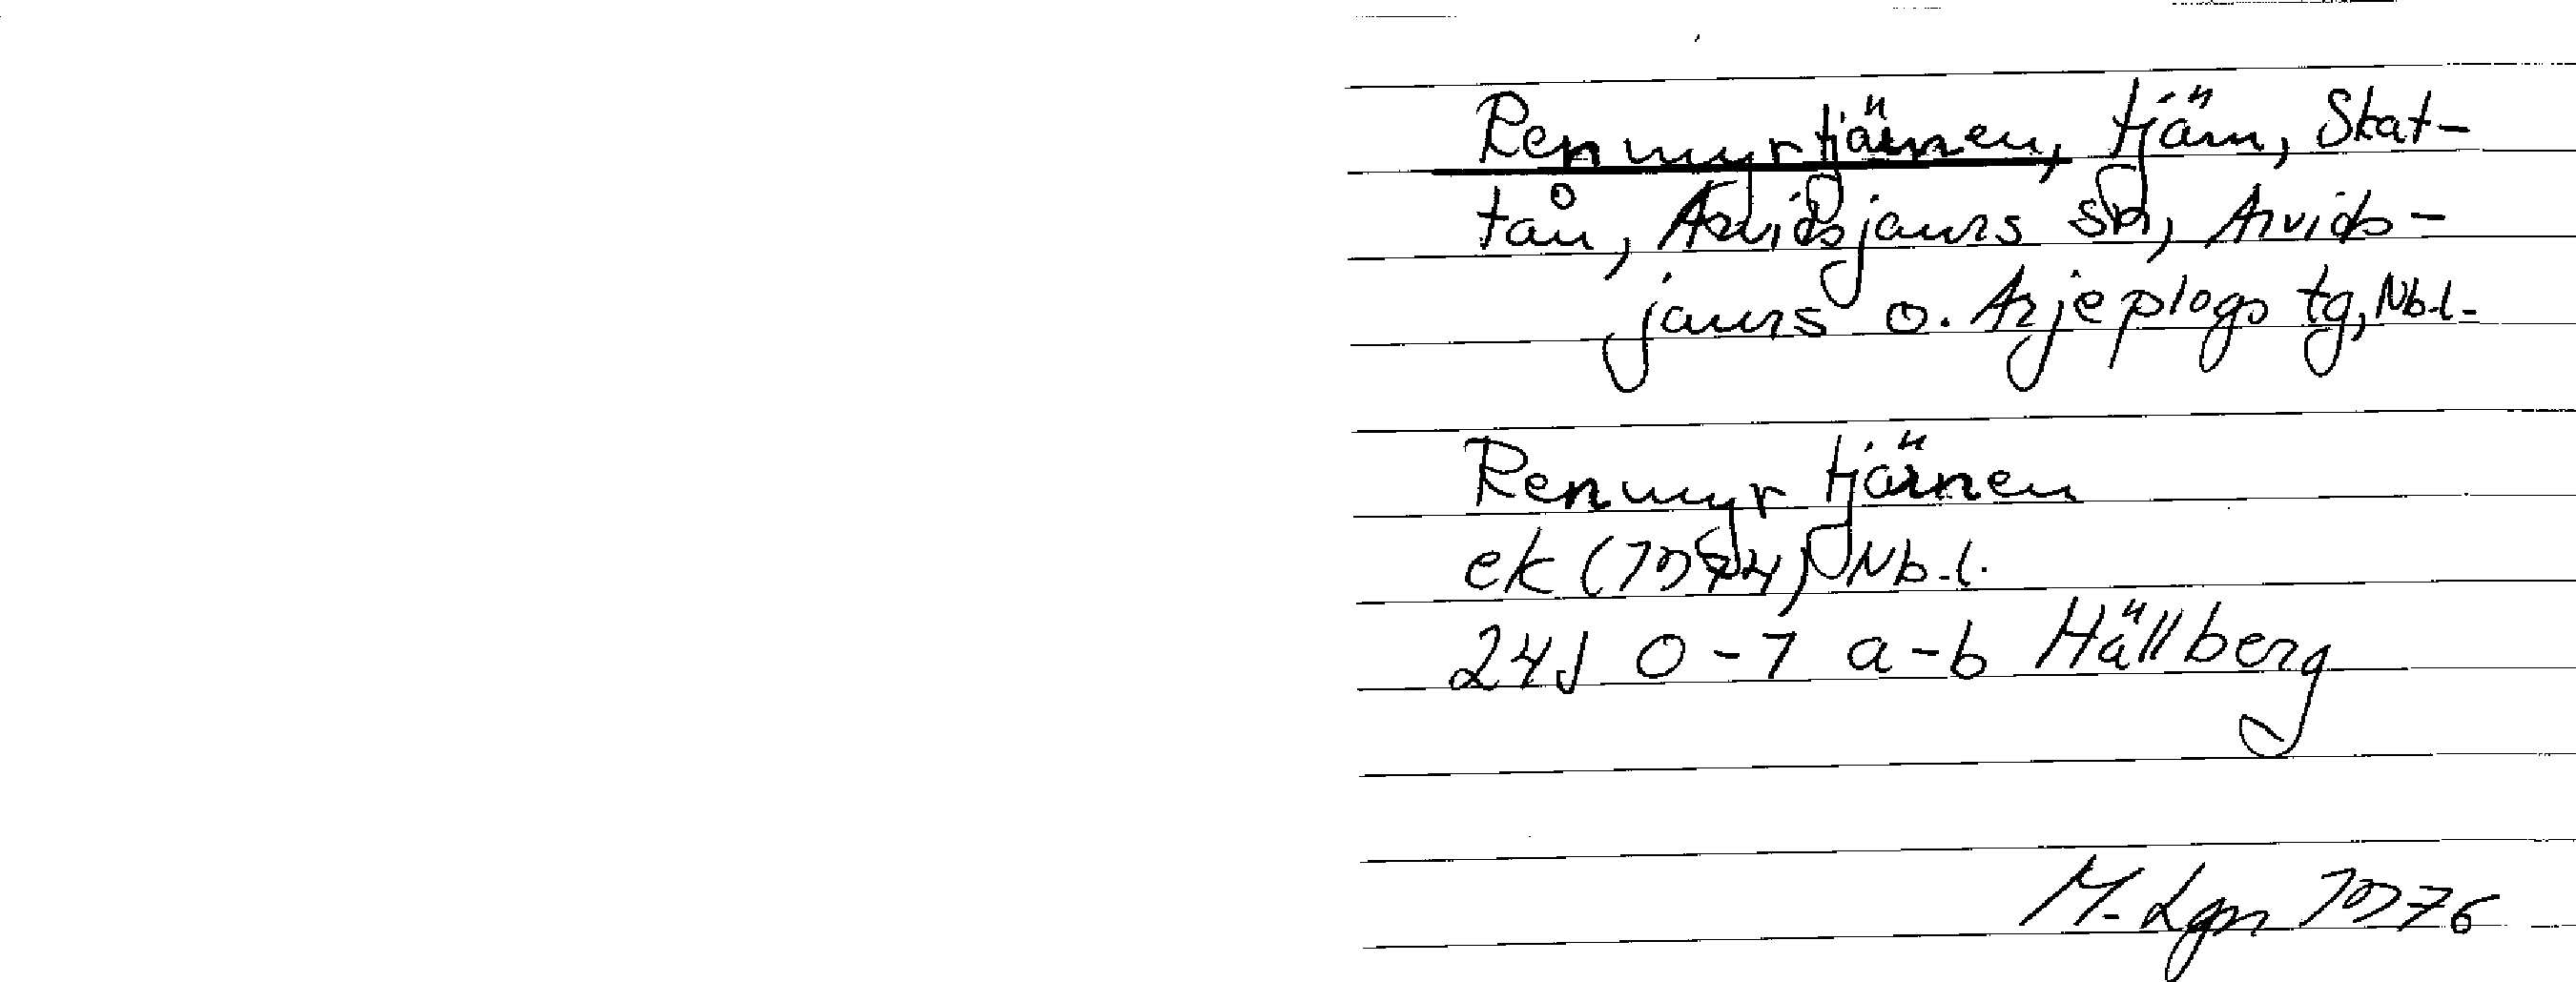 Renmyrtjärnen, tjärn, Skat-
tån, Arvidsjaurs sn, Arvids-
jaurs o. Arjeplogs tg, Nb.l.
Renmyrtjärnen
ek (1974) Nb.l.
24J 0-1 a-b Hällberg
M. Lgn 1976